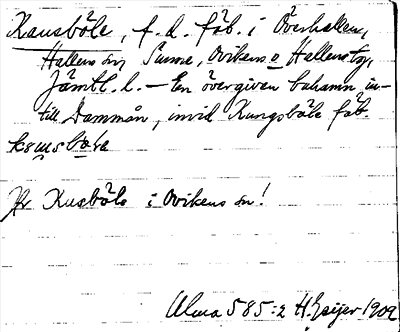 Kausböle, f. d. fäb. i Överhallen,
Hallens sn, Sunne, Ovikens o Hallens tg,
Jämtl. l. – En övergiven buhamn in-
till Dammån, invid Kungsböle fäb.
Jfr Kusböle i Ovikens sn!
Ulma 585:2 H. Geijer 1909